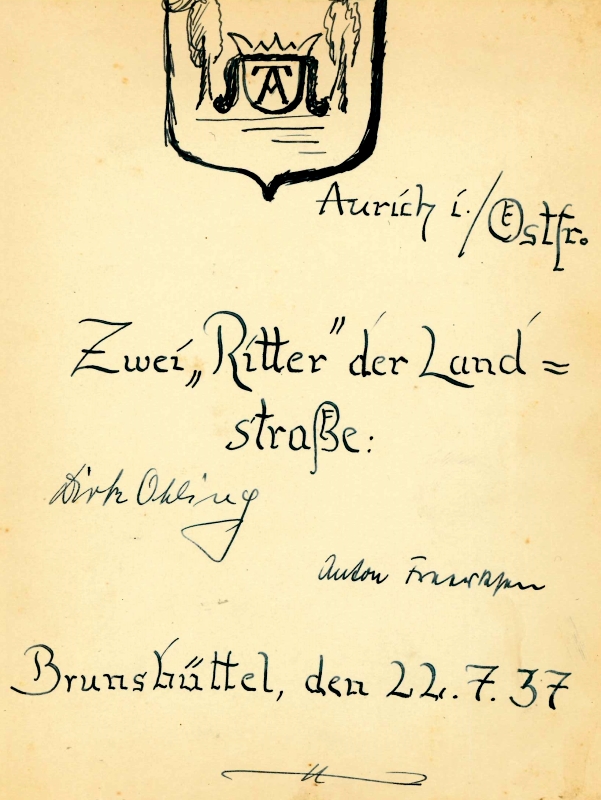 Aurich i./Ostfr.
Zwei „Ritter" der Land=
straße:
Dirk Ohling
Anton
Brunsbüttel, den 22.7.37